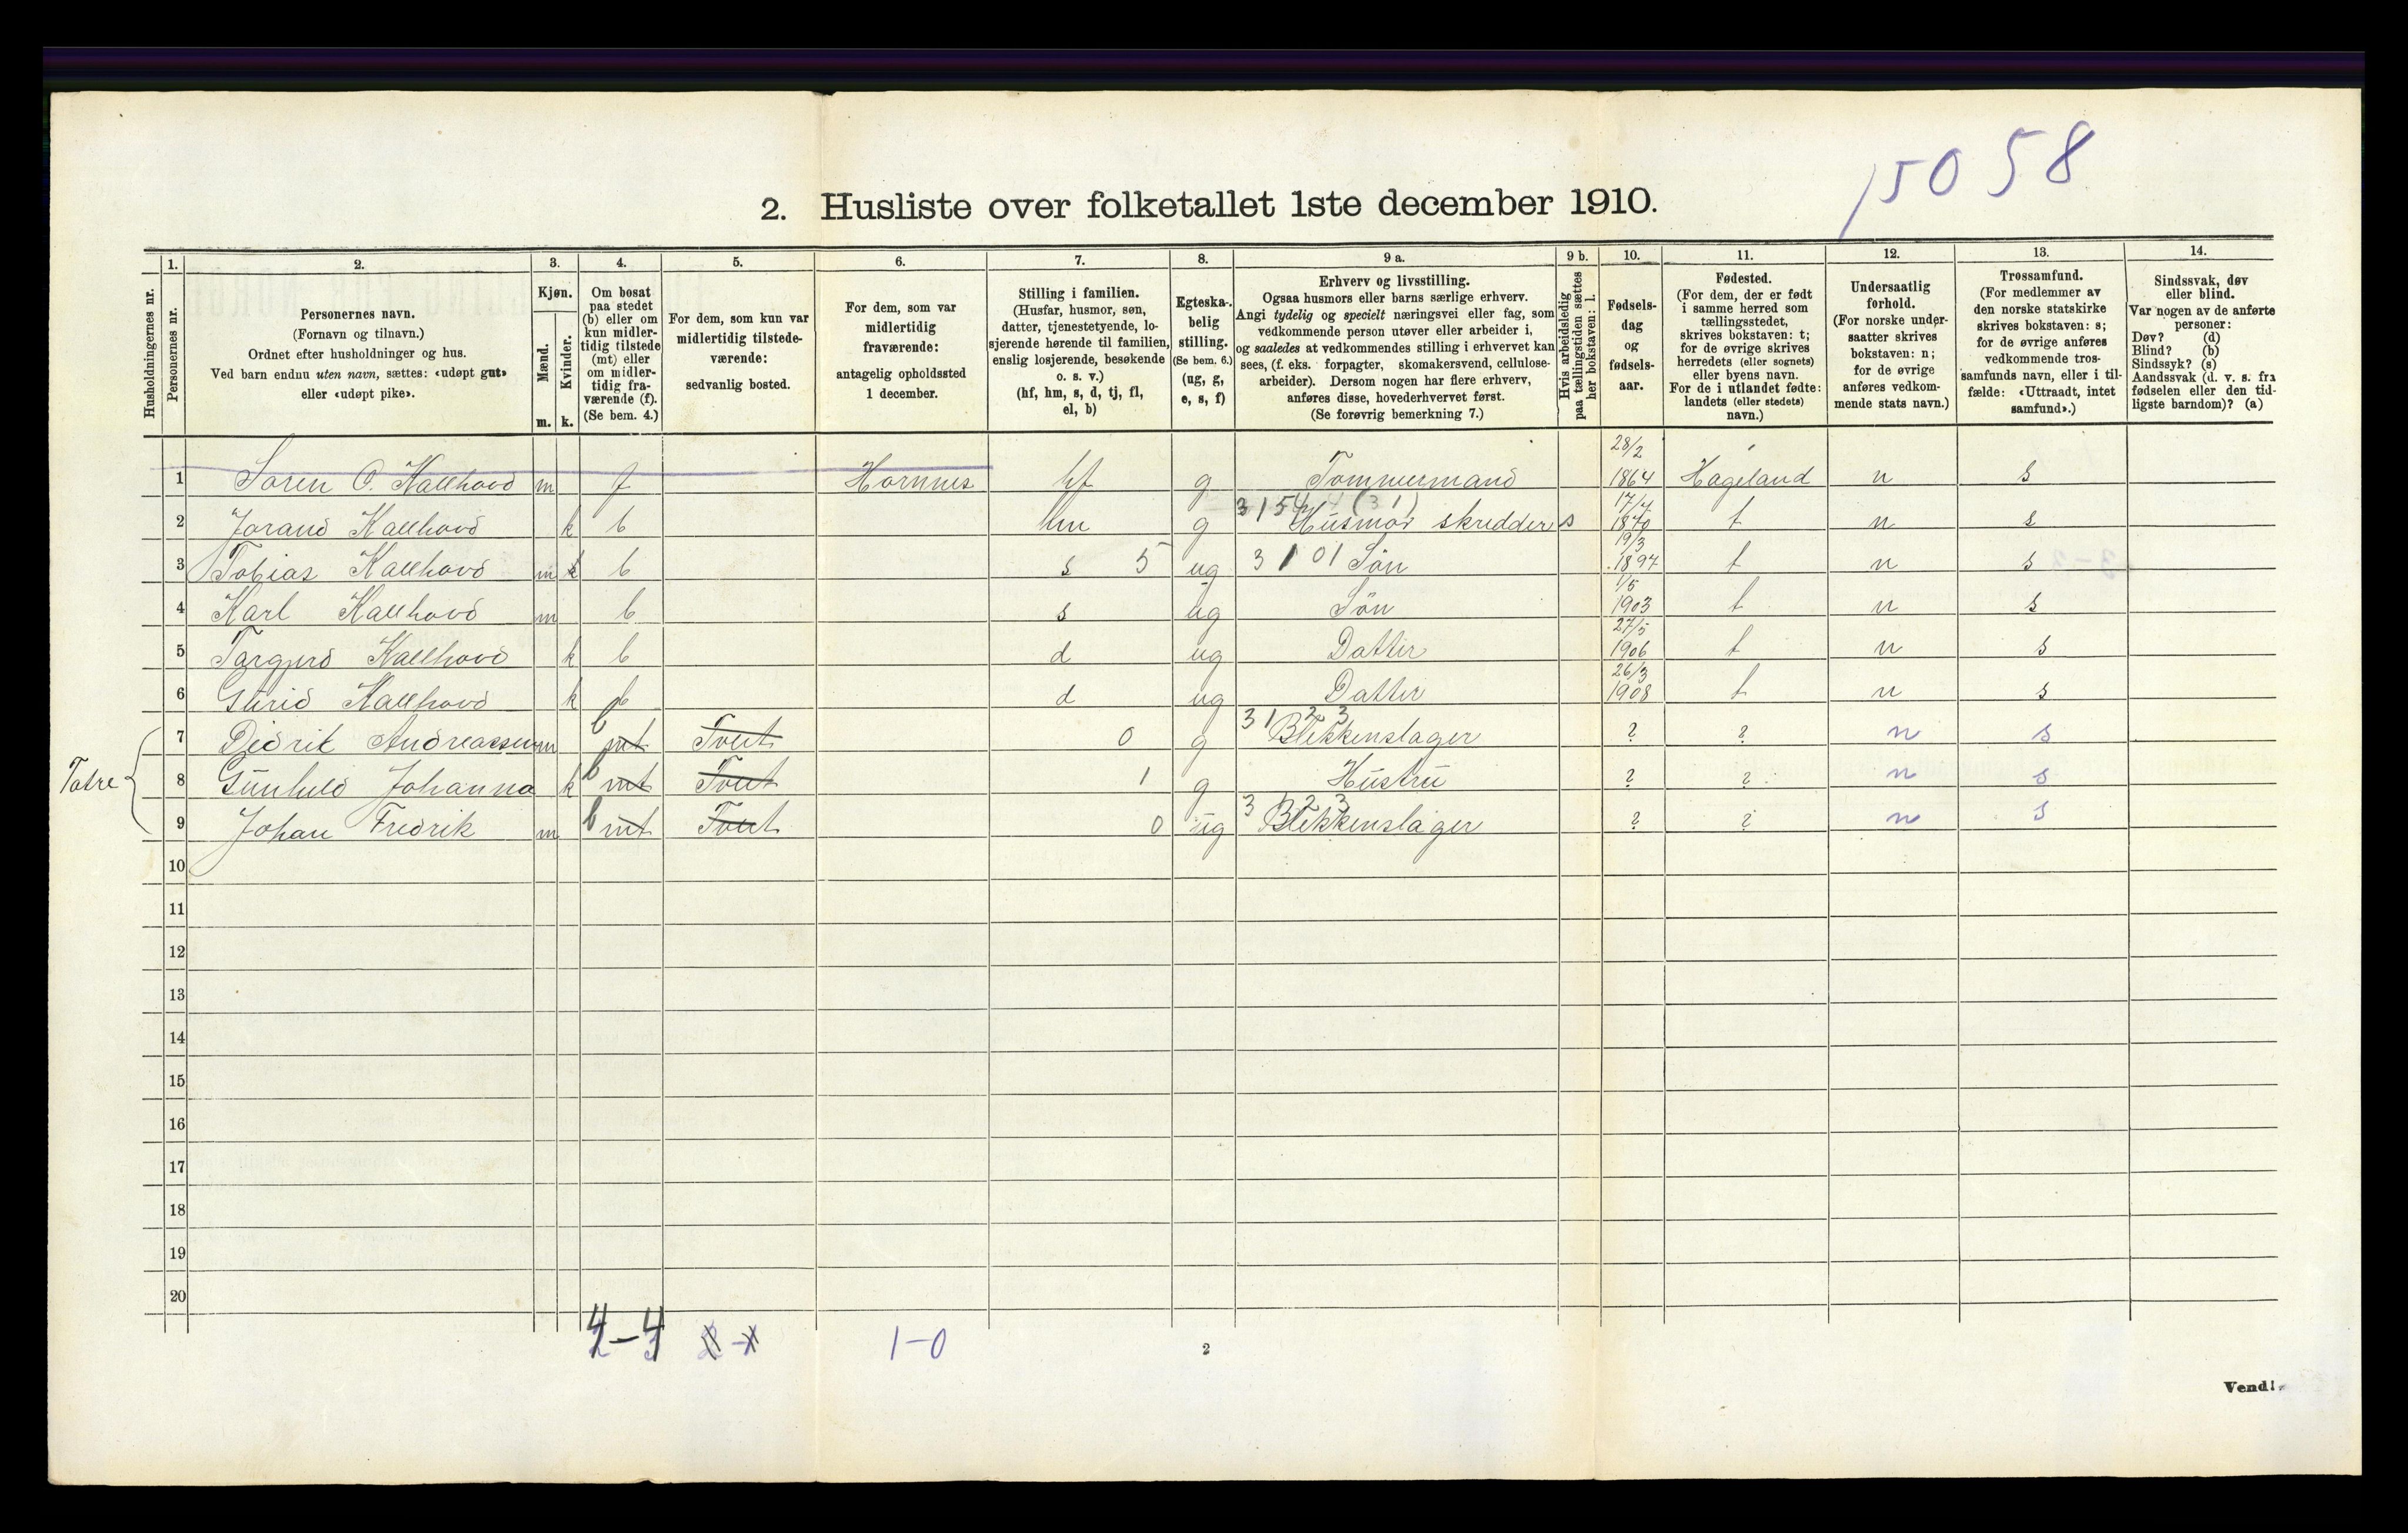 15058
2. Husliste over folketallet 1ste december 1910.
Husholdningernes nr.
1.
Personernes nr.
2.
Personernes navn.
(Fornavn og tilnavn.)
Ordnet efter husholdninger og hus.
Ved barn endnu uten navn, sættes: «udøpt gut»
eller «udøpt pike».
3.
Kjøn.
Mænd.
Kvinder.
m. k.
4.
Om bosat
paa stedet
(b) eller om
kun midler-
tidig tilstede
(mt) eller
om midler-
tidig fra-
værende (f).
(Se bem. 4.)
5.
For dem, som kun var
midlertidig tilstede-
værende:
sedvanlig bosted.
6.
For dem, som var
midlertidig
fraværende:
antagelig opholdssted
1 december.
7.
Stilling i familien.
(Husfar, husmor, søn,
datter, tjenestetyende, lo-
sjerende hørende til familien,
enslig losjerende, besøkende
o. s. v.)
(hf, hm, s, d, tj, fl,
el, b)
8.
Egteska-
belig
stilling.
(Se bem. 6.)
(ug, g,
e, s, f)
9 a.
Erhverv og livsstilling.
Ogsaa husmors eller barns særlige erhverv.
Angi tydelig og specielt næringsvei eller fag, som
vedkommende person utøver eller arbeider i,
og saaledes at vedkommendes stilling i erhvervet kan
sees, (f. eks. forpagter, skomakersvend, cellulose-
arbeider). Dersom nogen har flere erhverv,
anføres disse, hovederhvervet først.
(Se forøvrig bemerkning 7.)
9 b.
Hvis arbeidsledig
paa tællingstiden sættes
her bokstaven: l.
10.
Fødsels-
dag
og
fødsels-
aar.
11.
Fødested.
(For dem, der er født
i samme herred som
tællingsstedet,
skrives bokstaven: t;
for de øvrige skrives
herredets (eller sognets)
eller byens navn.
For de i utlandet fødte:
landets (eller stedets)
navn.)
12.
Undersaatlig
forhold.
(For norske under-
saatter skrives
bokstaven: n;
for de øvrige
anføres vedkom-
mende stats navn.)
13.
Trossamfund.
(For medlemmer av
den norske statskirke
skrives bokstaven: s;
for de øvrige anføres
vedkommende tros-
samfunds navn, eller i til-
fælde: «Uttraadt, intet
samfund».)
14.
Sindssvak, døv
eller blind.
Var nogen av de anførte
personer:
Døv? (d)
Blind? (b)
Sindssyk? (s)
Aandssvak (d. v. s. fra
fødselen eller den tid-
ligste barndom)? (a)
1 Søren O. Kallhovd m f Hornnes hf g Tømmermand 28/2 1864 Hægeland n s
2 Jorand Kallhovd k b hm g 3154 4 (31) Husmor skredder s 17/4 1870 t n s
3 Tobias Kallhovd m k b s 5 ug 3101 Søn 19/3 1897 t n s
4 Karl Kallhovd m b s ug Søn 1/5 1903 t n s
5 Targjerd Kallhovd k b d ug Datter 27/5 1906 t n s
6 Gurid Kallhovd k b d ug Datter 26/3 1908 t n s
Tatre
7 Didrik Andreassen m b mt Tveit 0 g 3123 Blekkenslager ? ? n s
8 Gunhild Johanna k b mt Tveit 1 g Hustru ? ? n s
9 Johan Fredrik m b mt Tveit 0 ug 3123 Blekkenslager ? ? n s
10
11
12
13
14
15
16
17
18
19
20
4-4 2-1 1-0
2
Vend!